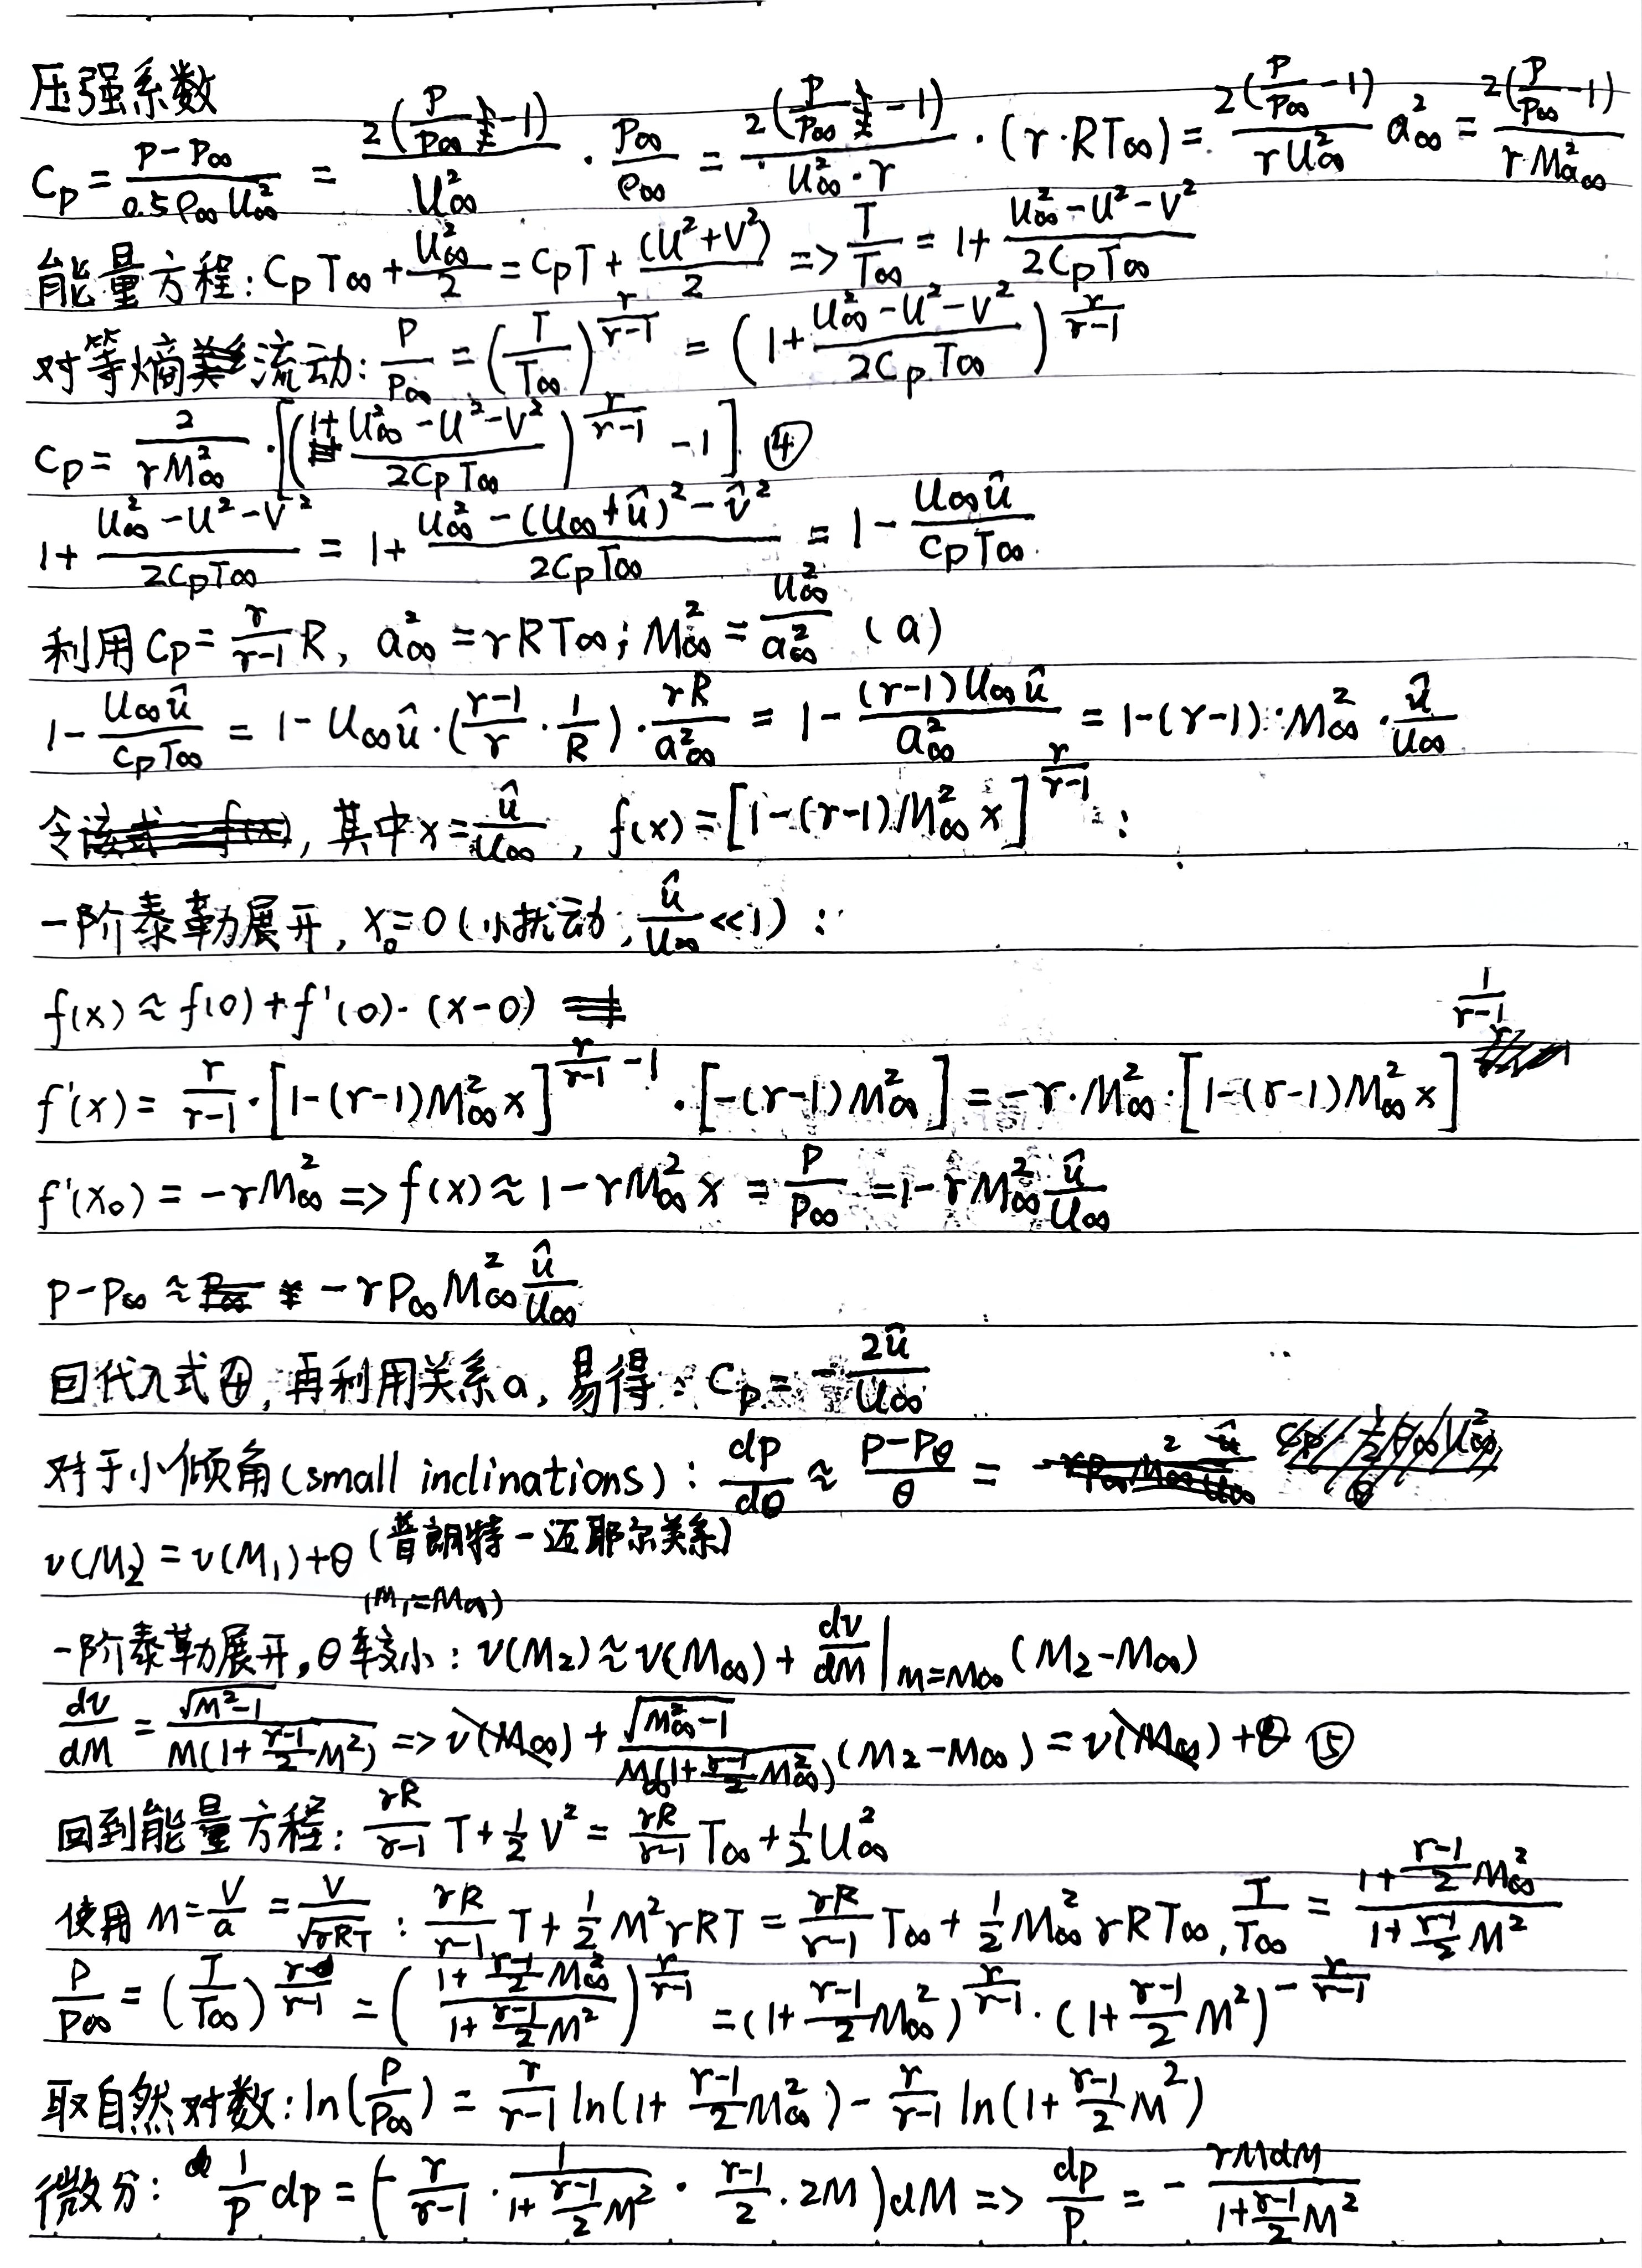 压强系数
Cp = (p-p∞)/(0.5ρ∞U∞²) = 2(p/p∞ -1)/U∞² · p∞/ρ∞ = 2(p/p∞ -1)/(U∞²·γ) · (γ·RT∞) = 2(p/p∞ -1)/(γU∞²) a∞² = 2(p/p∞ -1)/(γM∞²)
能量方程: CpT∞ + U∞²/2 = CpT + (U²+V²)/2 => T/T∞ = 1+ (U∞²-U²-V²)/(2CpT∞)
对等熵流动: P/P∞ = (T/T∞)^(γ/(γ-1)) = (1+ (U∞²-U²-V²)/(2CpT∞))^(γ/(γ-1))
Cp = 2/(γM∞²) ·[(1+ (U∞²-U²-V²)/(2CpT∞))^(γ/(γ-1)) -1] ④
1+ (U∞²-U²-V²)/(2CpT∞) = 1+ (U∞²-(U∞+û)²-v̂²)/(2CpT∞) = 1- U∞û/(CpT∞)
利用Cp= γ/(γ-1) R, a∞²=γRT∞; M∞²= U∞²/a∞² (a)
1- U∞û/(CpT∞) = 1- U∞û·((γ-1)/γ · 1/R)· γR/a∞² = 1- (γ-1)U∞û/a∞² = 1-(γ-1)·M∞²· û/U∞
令, 其中x= û/U∞, f(x)=[1-(γ-1)M∞²x]^(γ/(γ-1)) :
一阶泰勒展开, x₀=0(小扰动, û/U∞ ≪1) :
f(x)≈f(0)+f'(0)·(x-0)
f'(x)= γ/(γ-1)·[1-(γ-1)M∞²x]^(γ/(γ-1) -1)·[-(γ-1)M∞²] = -γ·M∞²·[1-(γ-1)M∞²x]^(1/(γ-1))
f'(x₀) = -γM∞² => f(x)≈1-γM∞²x = P/P∞ = 1-γM∞² û/U∞
P-P∞ ≈ -γP∞M∞² û/U∞
回代入式④, 再利用关系a, 易得: Cp= - 2û/U∞
对于小倾角(small inclinations): dp/dθ ≈ (P-Pθ)/θ =
ν(M₂)=ν(M₁)+θ (普朗特-迈耶尔关系)
(M₁=M∞)
一阶泰勒展开,θ较小: ν(M₂)≈ν(M∞)+ dν/dM |M=M∞ (M₂-M∞)
dν/dM = √(M²-1)/(M(1+ (γ-1)/2 M²)) => ν(M∞)+ √(M∞²-1)/(M∞(1+ (γ-1)/2 M∞²)) (M₂-M∞) = ν(M∞)+θ ⑤
回到能量方程: γR/(γ-1) T+ 1/2 V² = γR/(γ-1) T∞ + 1/2 U∞²
使用 M= V/a = V/√(γRT) : γR/(γ-1) T+ 1/2 M²γRT = γR/(γ-1) T∞ + 1/2 M∞²γRT∞, T/T∞ = (1+ (γ-1)/2 M∞²)/(1+ (γ-1)/2 M²)
P/P∞ = (T/T∞)^(γ/(γ-1)) = ((1+ (γ-1)/2 M∞²)/(1+ (γ-1)/2 M²))^(γ/(γ-1)) = (1+ (γ-1)/2 M∞²)^(γ/(γ-1)) · (1+ (γ-1)/2 M²)^(-γ/(γ-1))
取自然对数: ln(P/P∞) = γ/(γ-1) ln(1+ (γ-1)/2 M∞²) - γ/(γ-1) ln(1+ (γ-1)/2 M²)
微分: 1/P dp = (- γ/(γ-1) · 1/(1+ (γ-1)/2 M²) · (γ-1)/2 · 2M)dM => dp/P = - γMdM/(1+ (γ-1)/2 M²)